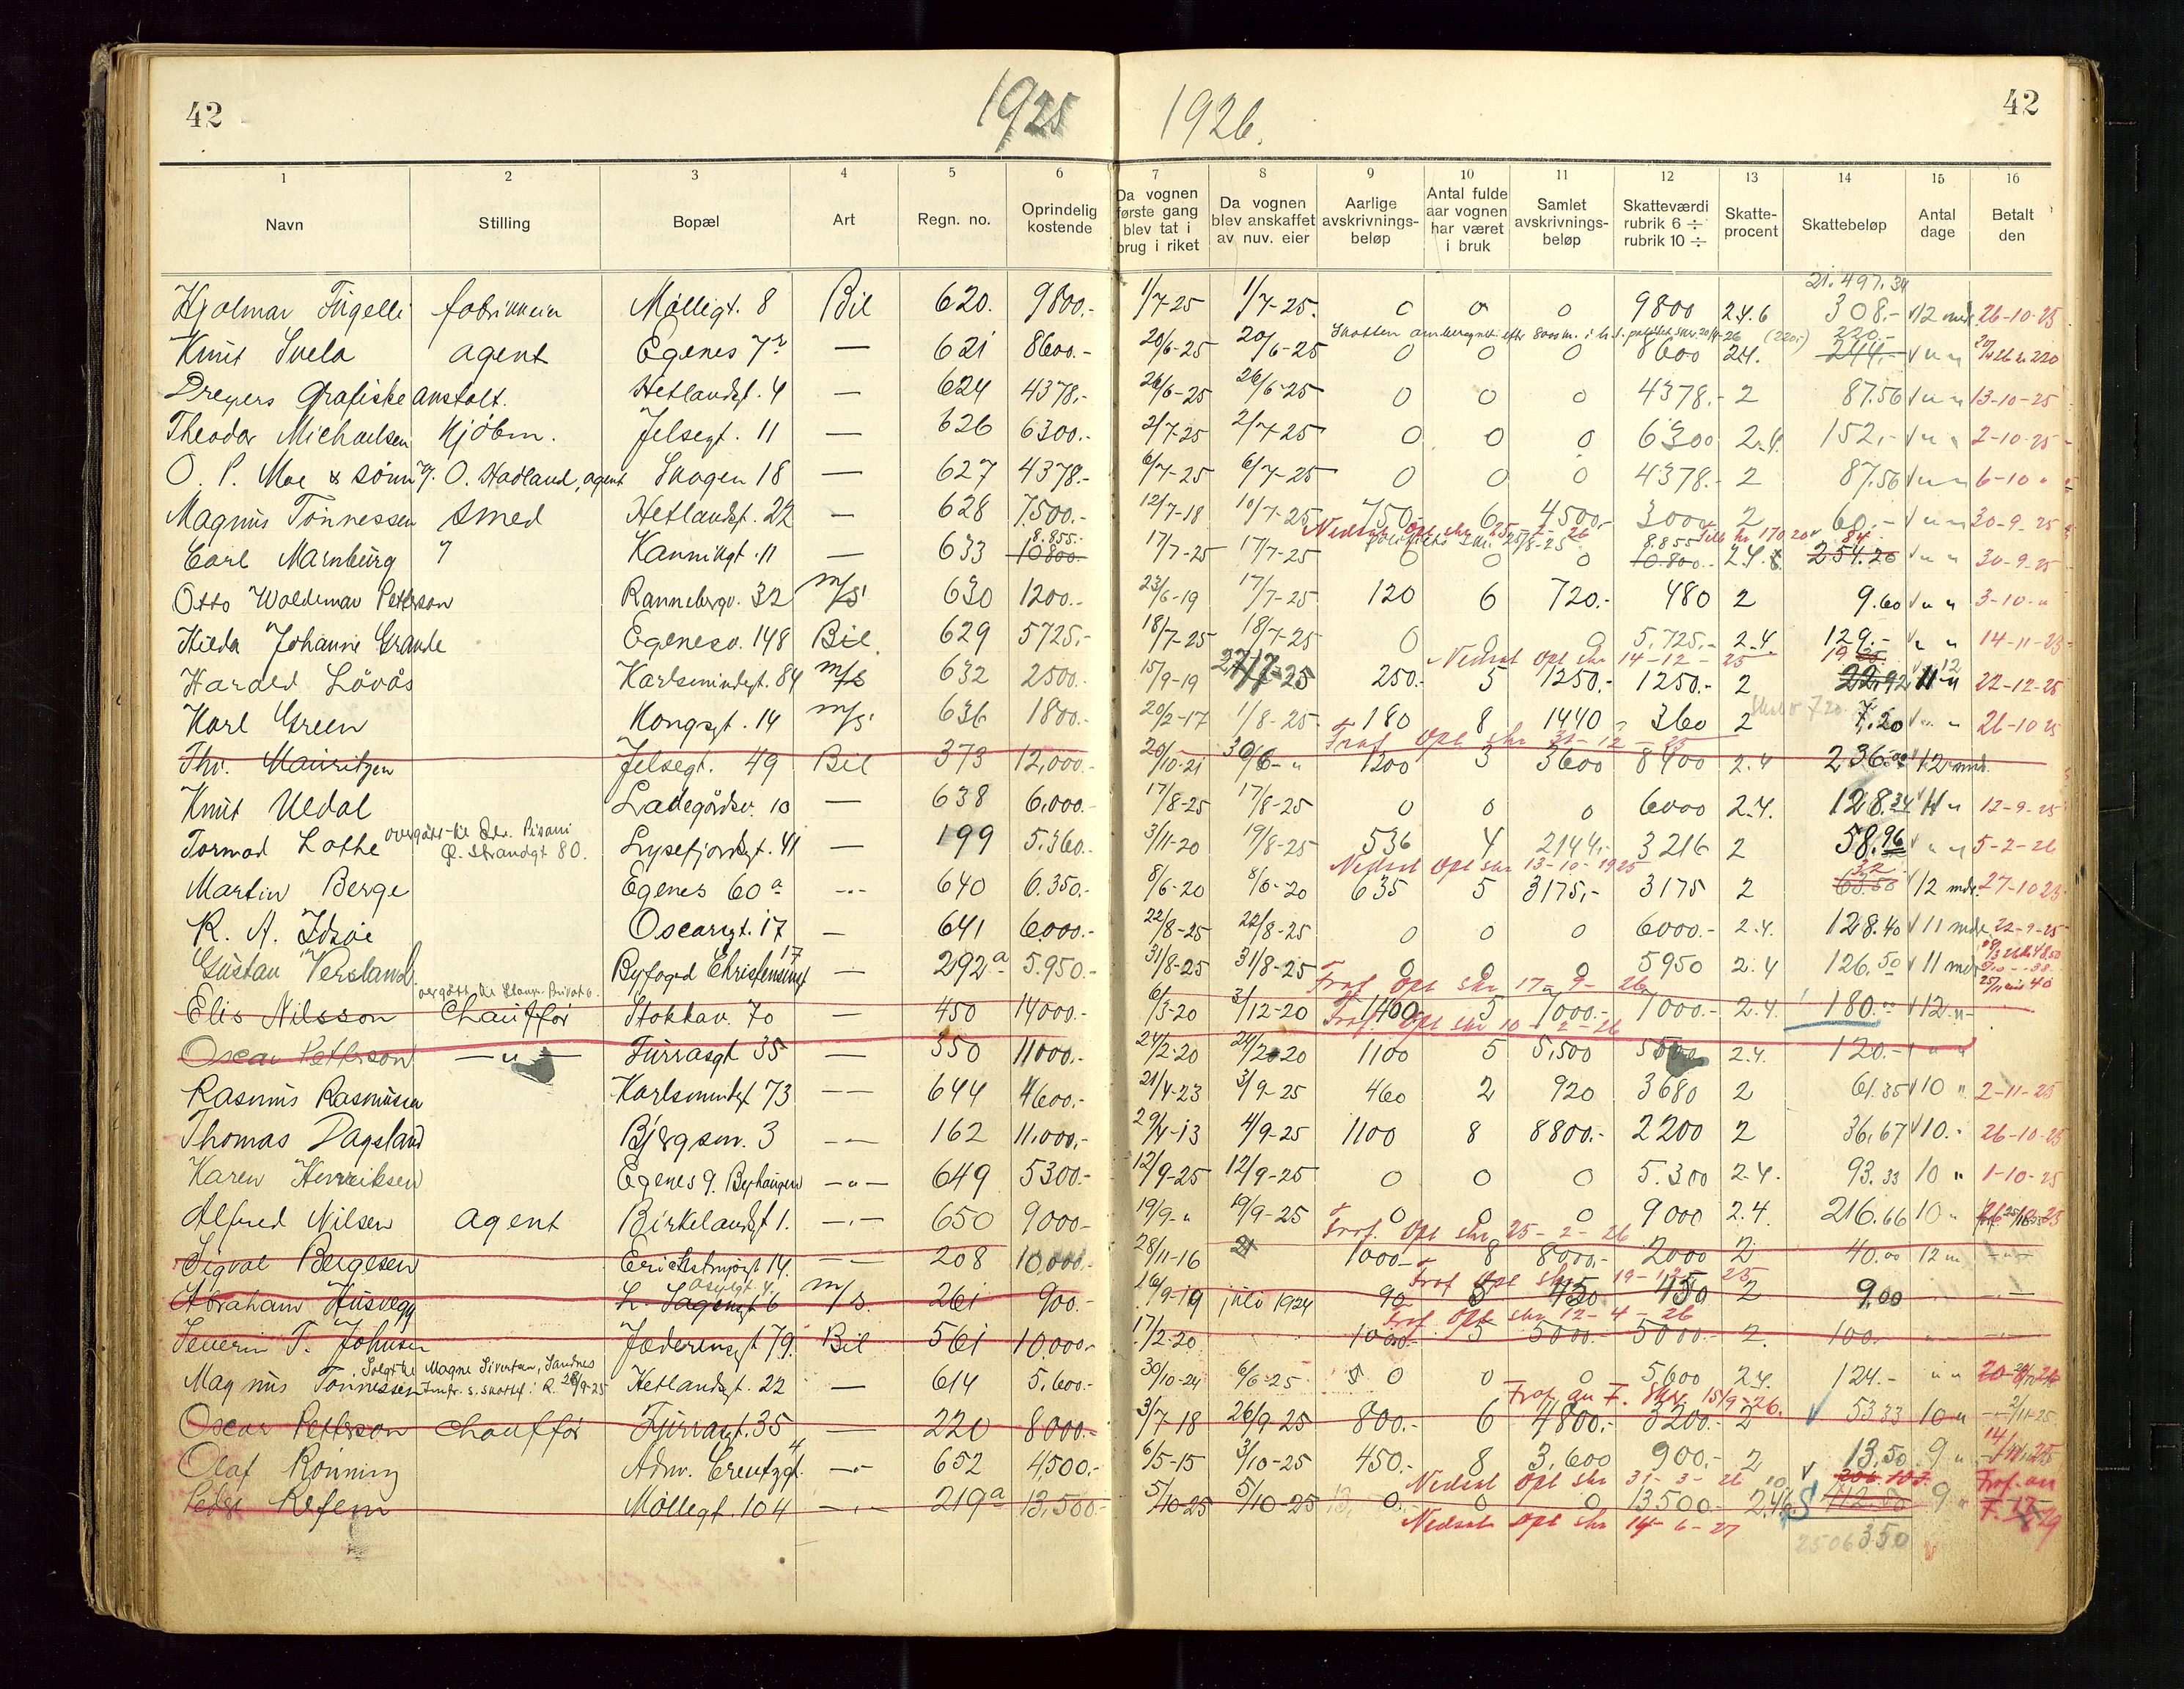 42
1925
1926.
42
1 2 3 4 5 6 7 8 9 10 11 12 13 14 15 16
Navn Stilling Bopæl Art Regn. no. Oprindelig kostende Da vognen første gang blev tat i brug i riket Da vognen blev anskaffet av nuv. eier Aarlige avskrivnings-beløp Antal fulde aar vognen har været i bruk Samlet avskrivnings-beløp Skatteværdi rubrik 6 ÷ rubrik 10 ÷ Skatte-procent Skattebeløp Antal dage Betalt den
21.497.34
Hjalmar Figelli fabrikkeier Møllegt. 8 Bil 620. 9800.- 1/7-25 1/7-25. 0 0 0 9800 2.4.6 308.- 12 mdr. 26-10-25
Skatten omberegnet efter 8000 kr. (220.-) 220.-
Knut Svela agent Egenes 7 — 621 8600.- 20/6-25 20/6-25 0 0 0 8600 2.4. 244.- " " 220
Dreyers Grafiske anstalt. Hetlandsgt. 4 — 624 4378.- 26/6-25 26/6-25 0 0 0 4378.- 2 87.56 " " 13-10-25
Theodor Michaelsen Kjøbm. Jelsegt. 11 — 626 6300.- 2/7-25 2/7-25 0 0 0 6300 2.4. 152.- " " 2-10-25
O. P. Moe & sønn O. Hadland, agent Skagen 18 — 627 4378.- 6/7-25 6/7-25 0 0 0 4378.- 2 87.56 " " 6-10 "
Magnus Tönnessen Smed Hetlandsgt. 22 — 628 7.500.- 12/7-18 10/7-25 750.- 6 4500.- 3000 2 60.- " " 30-9-25
8.855.- Nedsat Opl skr 25-2-26 8.855 84.-
Carl Marnburg Kannikgt. 11 — 633 10800.- 17/7-25 17/7-25 0 0 0 10.800.- 2.4. 254.20 " " 30-9-25
Otto Woldemar Petterson Rannebergv. 32 m/s. 630 1200.- 23/6-19 17/7-25 120 6 720.- 480 2 9.60 " " 3-10-"
Hilda Johanne Grande Egenesv. 148 Bil. 629 5725.- 18/7-25 18/7-25 0 0 0 5.725.- 2.4. 129.- " " 14-11-25
Nedsat Opl skr 14-12-25
Harald Lövås Karlsmindegt. 84 m/s 632 2500.- 15/9-19 27/7-25 250.- 5 1250.- 1250.- 2 22.92 11 " 22-12-25
Karl Green Kongsgt. 14 m/s. 636 1800.- 20/2-17 1/8-25 180 8 1440 360 2 7.20 " " 26-10-25
Fraf Opl skr 31-12-25
Thv. Mauritzen Jelsegt. 49 Bil 373 12,000.- 20/10-21 30/6-" 1200 3 3600 8400 2.4 236.- 12 mdr.
Knut Uedal Ladegårdsv. 10 — 638 6.000.- 17/8-25 17/8-25 0 0 0 6000 2.4. 128.34 11 " 12-9-25
overgått til Pisani
Ø. Strandgt 80.
Tormod Lothe Lysefjordsgt. 41 — 199 5.360.- 3/11-20 19/8-25 536 4 2144.- 3216 2 58.96 " " 5-2-26
Nedsat Opl skr 13-10-1925
Martin Berge Egenes 60 a — 640 6.350.- 8/6-20 8/6-20 635 5 3175.- 3175 2 63.50 12 mdr. 27-10-25
R. A. Idsøe Oscarsgt. 17 — 641 6.000.- 22/8-25 22/8-25 0 0 0 6000.- 2.4. 128.40 11 mdr. 22-9-25
Gustav Versland Byfogd Christensensgt 17 — 292 a 5.950.- 31/8-25 31/8-25 0 0 0 5950 2.4 126.50 11 mdr
Fraf Opl skr 17-9-26
Elis Nilsson Chauffør Stokkav. 70 — 450 14000.- 6/3-20 3/12-20 1400 5 7000.- 7000.- 2.4. 180.- 12 -"-
Fraf Opl skr 10-2-26
Oscar Petterson —"— Furrasgt 35 — 350 11000.- 24/2-20 24/2-20 1100 5 5,500 5500 2.4. 120.- " "
Rasmus Rasmusen Karlsmindegt 73 — 644 4600.- 21/4-23 3/9-25 460 2 920 3680 2 61.35 10 " 2-11-25
Thomas Dagsland Bjergsen. 3 — 162 11,000.- 29/4-13 4/9-25 1100 8 8800.- 2200 2 36.67 10.- 26-10-25
Karen Henriksen Egenes 9. Byhaugen —"— 649 5300.- 12/9-25 12/9-25 0 0 0 5.300 2.4. 93.33 10 " 1-10-25
Alfred Nilsen agent Birkelandsgt 1. —"— 650 9000- 19/9-" 19/9-25 0 0 0 9000 2.4. 216.66 10 "
Fraf. Opl skr 25-2-26
Sigval Bergesen 14. — 208 10,000.- 28/11-16 1000- 8 8000.- 2000 2 40.00 12 m —"—
Fraf Opl skr 19-12-25
Abraham Husvegg L. Sagensgt 6 m/s. 261 900.- 16/9-19 juli 1924 90 5 450 450 2 9.00
Fraf Opl skr 12-4-26
Severin T. Johnsen Jæderensgt 79. Bil 561 10.000.- 17/2-20 1000.- 5 5000.- 5000.- 2. 100.
Solgt til Magne Sivertsen, Sandnes
Magnus Tönnessen Hetlandsgt. 22 — 614 5.600.- 30/10-24 6/6-25 0 0 0 5600 2.4. 124.- " "
Fraf. an F. Skr. 15/9-26.
Oscar Petterson Chauffør Furrasgt. 35 — 220 8000.- 3/7-18 26/9-25 800.- 6 4800.- 3200.- 2 53.33 10 "
Olaf Rönning Adm. Creutzgt. 4 —"— 652 4500.- 6/5-15 3/10-25 450.- 8 3.600 900.- 2 13.50 9 "
Nedsat Opl skr 31-3-26 Fraf. an
Peder Refem Møllegt. 104 —"— 219 a 13,500.- 5/10-25 5/10-25 0.- 0 0 13500.- 2.4.6 412.50 9 "
Nedsat Opl skr 14-6-27
2506350